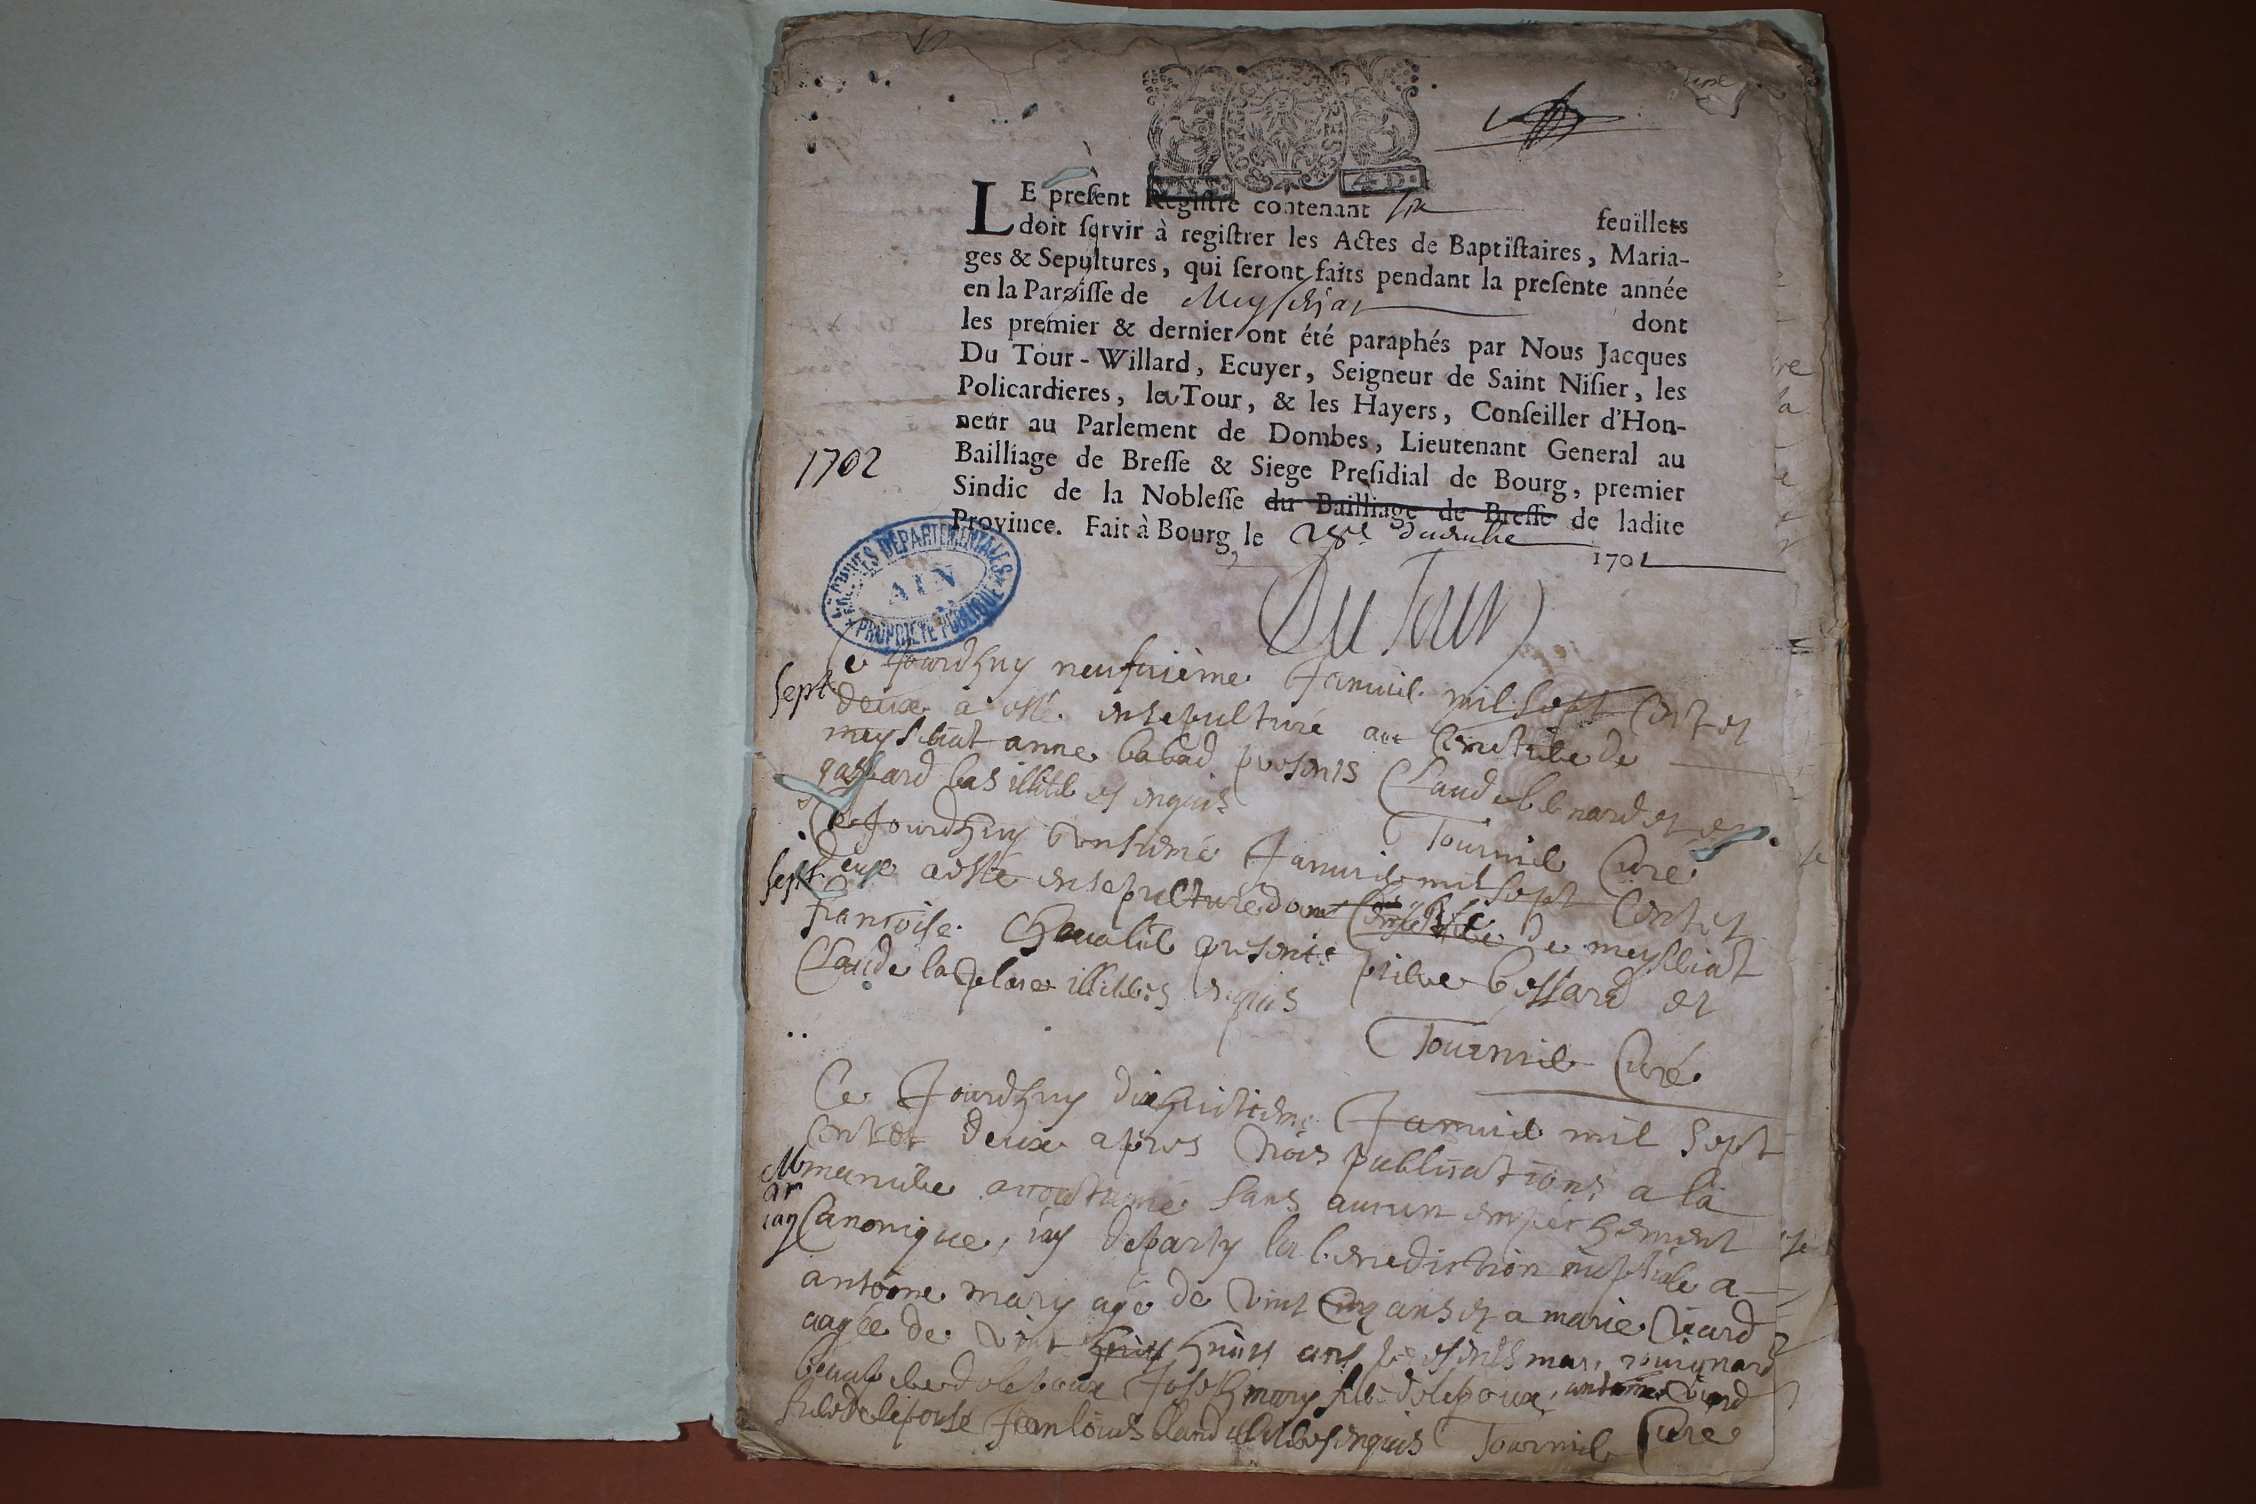 LE preſent Regiſtre contenant six feüillets
doit ſervir à regiſtrer les Actes de Baptiſtaires, Maria-
ges & Sepultures, qui ſeront faits pendant la preſente année
en la Paroiſſe de Meysseria dont
les premier & dernier ont été paraphés par Nous Jacques
Du Tour-Willard, Ecuyer, Seigneur de Saint Niſier, les
Policardieres, la Tour, & les Hayers, Conſeiller d'Hon-
neur au Parlement de Dombes, Lieutenant General au
Bailliage de Breſſe & Siege Preſidial de Bourg, premier
Sindic de la Nobleſſe du Bailliage de Breſſe de ladite
Province. Fait à Bourg, le 1701
1702
ARCHIVES DEPARTEMENTALES
AIN
PROPRIETE PUBLIQUE
Du Tour
Ce Jourdhuy neufuième Januié mil sept Cent et
sept deux a esté ensepulturé au Cemetiere de
meysseriat anne babad presents Claude et
gaspard bas illité enquis
Tournié Curé
Ce Jourdhuy Januié mil sept Cent et
sept deux a esté ensepulturé dans de meysseriat
francoise Cheualié presents bessard et
Claude la place illités enquis
Tournié Curé
Ce Jourdhuy dixhuitieme Januié mil sept
Cent et deux apres trois publications a la
maniere accoutumé sans aucun empechement
Canonique, iay departy la benediction nuptiale a
antoine mary agé de vint cinq ans et a marie viard
aagée de vint huit huitt ans presents
beaupere de lepoux Joseph mary de lepoux, antoine viard
de lepouse Jean louis enquis Tournié Curé